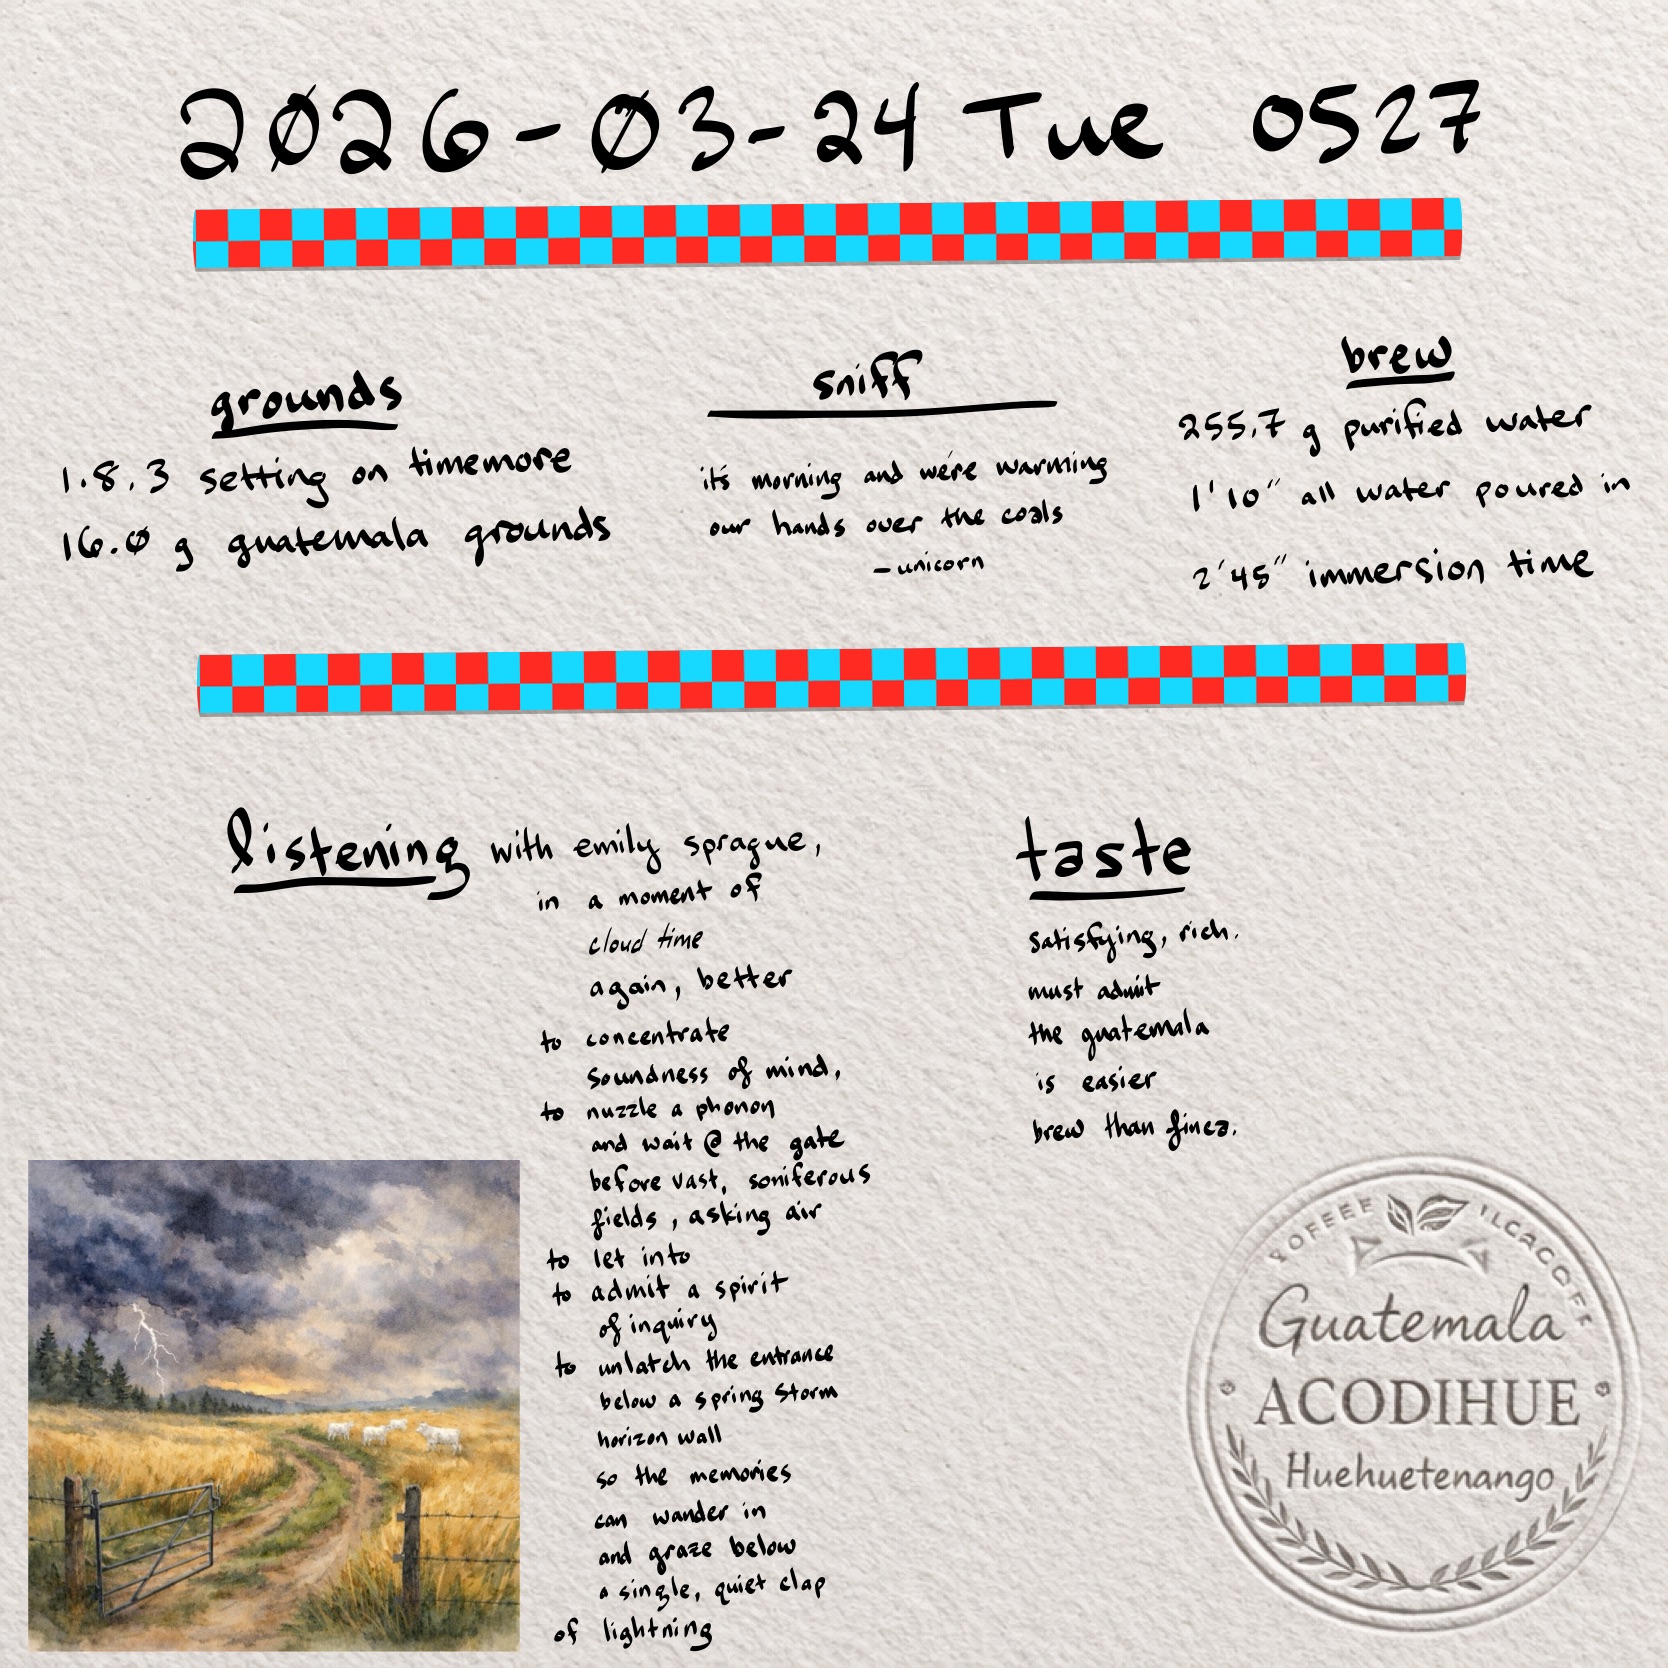 2026-03-24 Tue 0527
grounds
1.8.3 setting on timemore
16.0 g guatemala grounds
sniff
it's morning and we're warming
our hands over the coals
-unicorn
brew
255.7 g purified water
1'10" all water poured in
2'45" immersion time
listening with emily sprague,
in a moment of
cloud time
again, better
to concentrate
soundness of mind,
to nuzzle a phonon
and wait @ the gate
before vast, soniferous
fields, asking air
to let into
to admit a spirit
of inquiry
to unlatch the entrance
below a spring storm
horizon wall
so the memories
can wander in
and graze below
a single, quiet clap
of lightning
taste
satisfying, rich.
must admit
the guatemala
is easier
brew than finca.
Guatemala
ACODIHUE
Huehuetenango